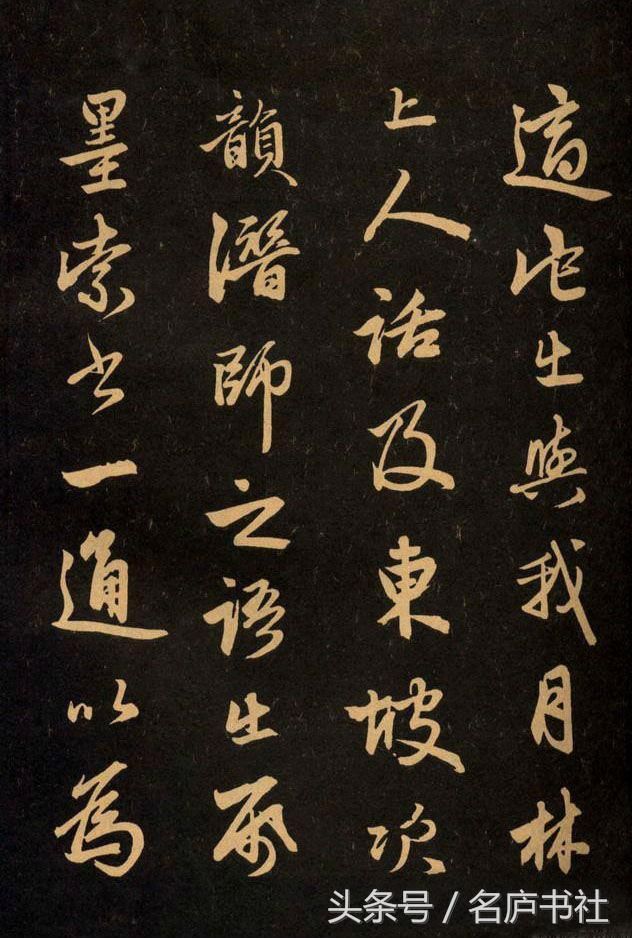 適他出與我月林
上人話及東坡次
韻潛師之語出帋
墨索書一通以為
头条号 / 名庐书社